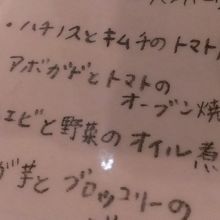 ・ハチノスとキムチのトマト
アボガドとトマトの
オーブン焼
エビと野菜のオイル煮
が芋とブロッコリーの